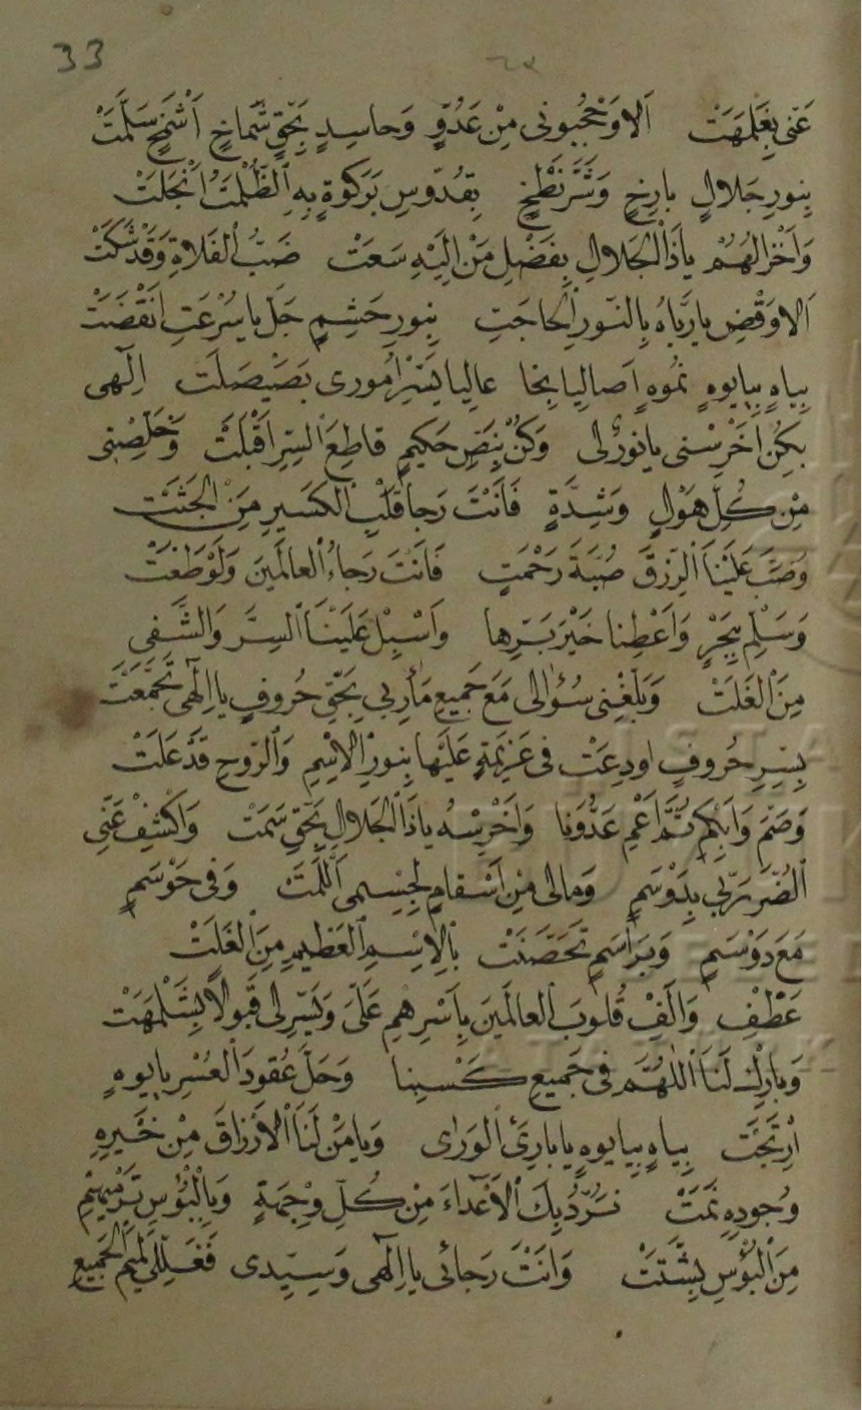 33
٦٣
عَنّى بِغَلْمَهَتْ اَلا وَحْجُبُونى مِنْ عَدُوٍّ وَحاسِدٍ بِحَقِّ شَماخٍ اَشْمَخٍ سَلَّمَتْ
بِنورِ جَلالٍ بازِخٍ وَشَرَنْطَخٍ بِقُدّوسِ بَرَكوةٍ بِهِ الظُّلْمَتُ انْجَلَتْ
يا ذَا الْجَلالِ بِفَضْلِ مَنْ اِلَيْهِ سَعَتْ ضَبُّ الْفَلاةِ وَقَدْ شَكَتْ
اَلا وَقْضِ يا رَبّاهُ بِالنّورِ الْحاجَتِ بِنورِ جَلّ يا سُرْعَتِ انْقَضَتْ
بِياهٍ بِيايوهٍ نَمُوهٍ اَصالِيا بِخا عالِيا يَسِّرْ اُمورى بَصَيْصَلَتْ اِلٰهى
يا نورُ لى وَكُنْ بِنَصِّ حَكيمٍ قاطِعَ السِّرِّ اَقْبَلَتْ وَخَلِّصْنى
مِنْ كُلِّ هَوْلٍ وَشِدَّةٍ فَاَنْتَ رَجا قَلْبِ الْكَسيرِ مِنَ الْجَثَتْ
وَصُبَّ عَلَيْنَا الرِّزْقَ صُبَّةَ رَحْمَتٍ فَاَنْتَ رَجاءُ الْعالَمينَ وَلَوْ طَغَتْ
وَسَلِّمْ بِبَحْرٍ وَاَعْطِنا خَيْرَ بَرِّها وَاَسْبِلْ عَلَيْنَا السِّتَر وَالشَّفى
مِنَ الْغَلَتْ وَبَلِّغْنى سُؤالى مَعَ جَميعِ مَأرِبى بِحَقِّ حُروفٍ يا اِلٰهى تَجَمَّعَتْ
بِسِرِّ حُروفٍ اودِعَتْ فى عَزيمَتٍ عَلَيْها بِنورِ الْاِسْمِ وَالرّوحِ قَدْ عَلَتْ
وَصُمَّ وَاَبْكِمْ ثُمَّ اَعْمِ عَدُوَّنا وَاَخْرِسْهُ يا ذَا الْجَلالِ بِحَقِّ سَمَتْ وَاكْشِفْ عَنّى
الضُّرَّ رَبّى بِدَوْسَمٍ وَمالى مِنْ اَسْقامٍ لِجِسْمى اَلَّمَتْ وَفى حَوْسَمٍ
مَعَ دَوْسَمٍ وَبَراسَمٍ تَحَصَّنَتْ بِالْاِسْمِ الْعَظيمِ مِنَ الْغَلَتْ
عَطِّفْ وَاَلِّفْ قُلوبَ الْعالَمينَ بِاَسْرِهِمْ عَلَىَّ وَيَسِّرْ لى قَبولًا بِشَلْمَهَتْ
وَبارِكْ لَنَا اللّٰهُمَّ فى جَميعِ كَسْبِنا وَحَلِّ عُقودَ الْعُسْرِ يايوهٍ
اِرْتَجَتْ بِياهٍ بِيايوهٍ يا بارِئَ الْوَرٰى وَيا مَنْ لَنَا الْاَرْزاقَ مِنْ خَيْرِهِ
وُجودِهِ نَمَتْ نَرُدُّ بِكَ الْاَعْداءَ مِنْ كُلِّ وِجْهَةٍ وَبِالْبُؤْسِ تَرْميهِمْ
مِنَ الْبُؤْسِ بِشَتَّتَتْ وَاَنْتَ رَجائى يا اِلٰهى وَسَيِّدى